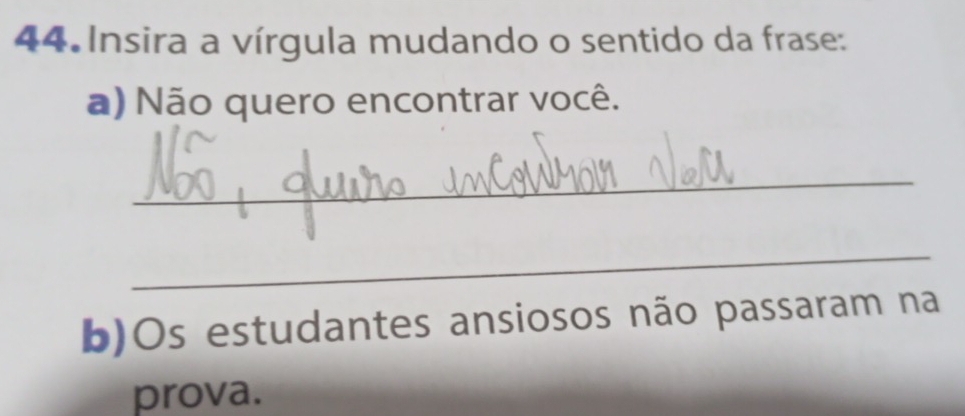 44. Insira a vírgula mudando o sentido da frase:
a) Não quero encontrar você.
Não, quero encontrar você
b) Os estudantes ansiosos não passaram na
prova.